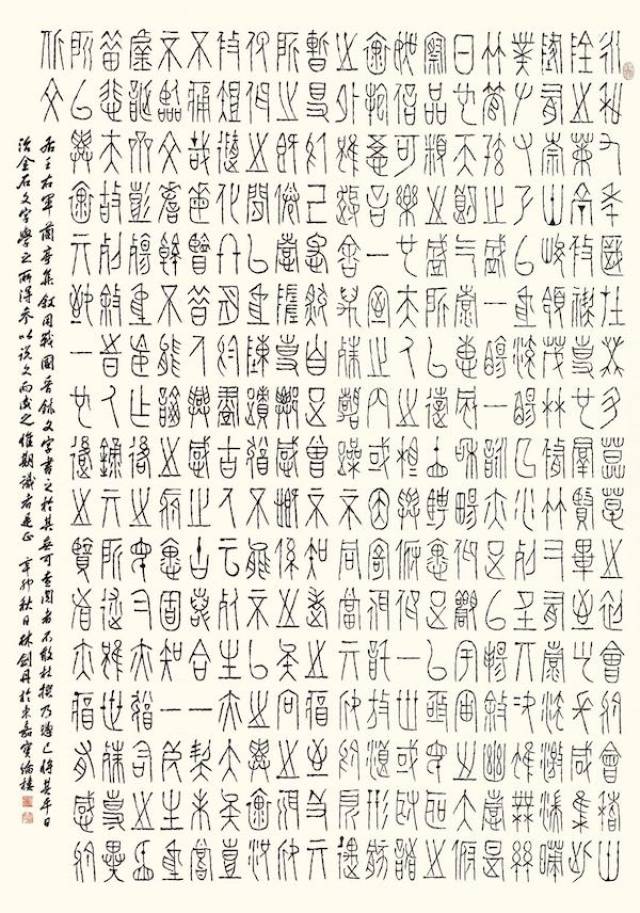 永和九年歲在癸丑暮春之初會于會稽山
陰之蘭亭脩禊事也羣賢畢至少長咸集此
地有崇山峻領茂林脩竹又有清流激湍映
帶左右引以為流觴曲水列坐其次雖無絲
竹管弦之盛一觴一詠亦足以暢敘幽情是
日也天朗氣清惠風和暢仰觀宇宙之大俯
察品類之盛所以遊目騁懷足以極視聽之
娛信可樂也夫人之相與俯仰一世或取諸
懷抱悟言一室之內或因寄所託放浪形骸
之外雖趣舍萬殊靜躁不同當其欣於所遇
暫得於己快然自足曾不知老之將至及其
所之既惓情隨事遷感慨係之矣向之所欣
俛仰之間以為陳跡猶不能不以之興懷況
脩短隨化終期於盡古人云死生亦大矣豈
不痛哉每攬昔人興感之由若合一契未嘗
不臨文嗟悼不能喻之於懷固知一死生為
虛誕齊彭殤為妄作後之視今亦由今之視
昔悲夫故列敘時人錄其所述雖世殊事異
所以興懷其致一也後之覽者亦將有感於
斯文
右王右軍蘭亭集敘用戰國晉系文字書之於其無可查閱者不敢杜撰乃遂已將其平日
治金石文字學之所得參以說文而成之惟期識者匡正 辛卯秋日林劍丹於永嘉寶綸樓